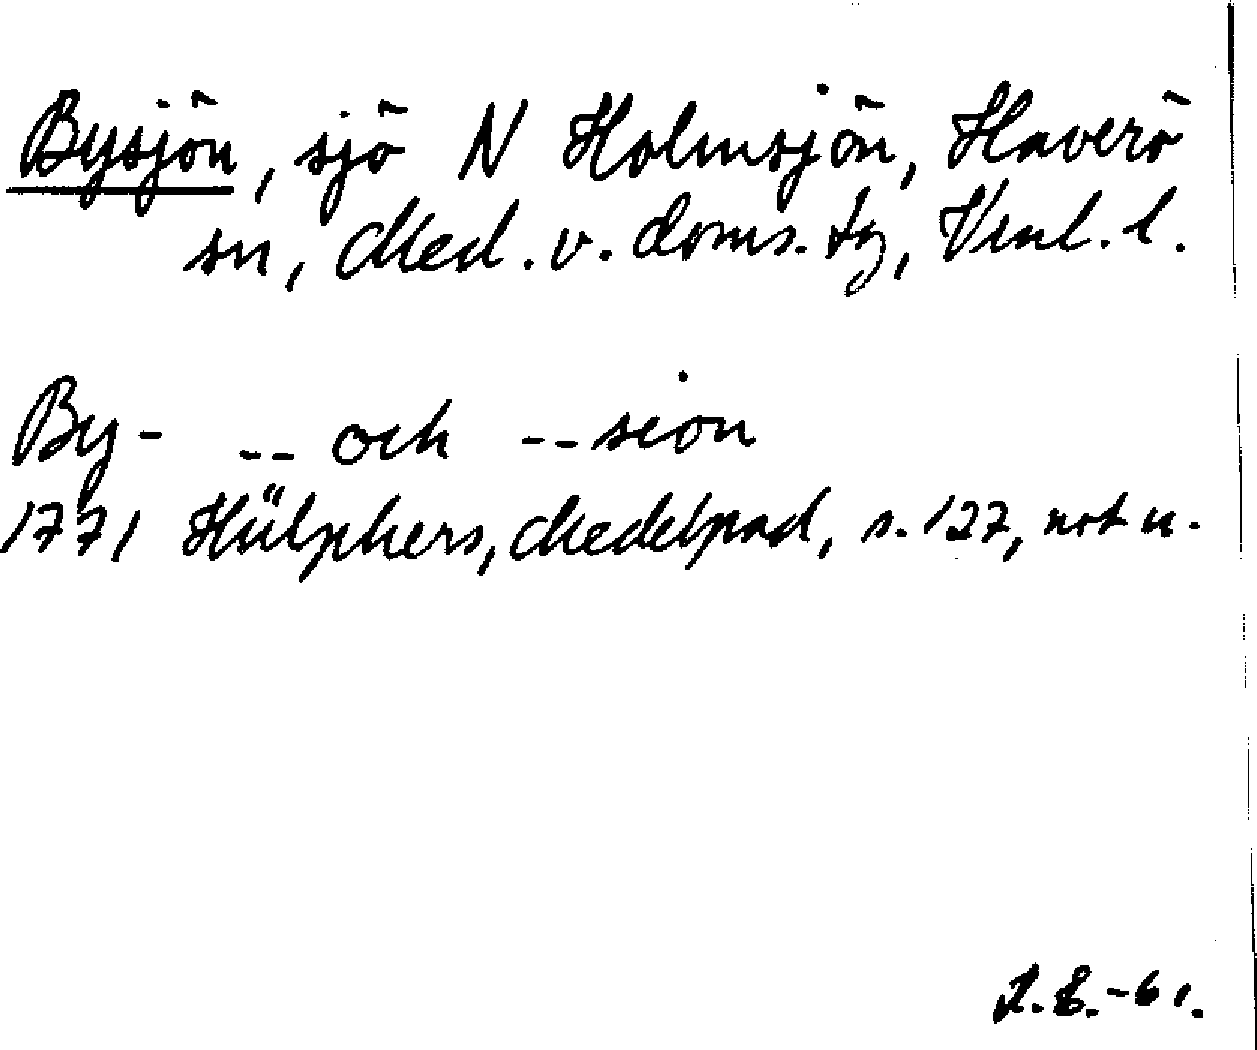 Bysjön, sjö N Holmsjön, Haverö
sn, Med. v. doms. tg, Vnl. l.
By- -- och --sion
1771 Hülphers, Medelpad, s. 127, not u.